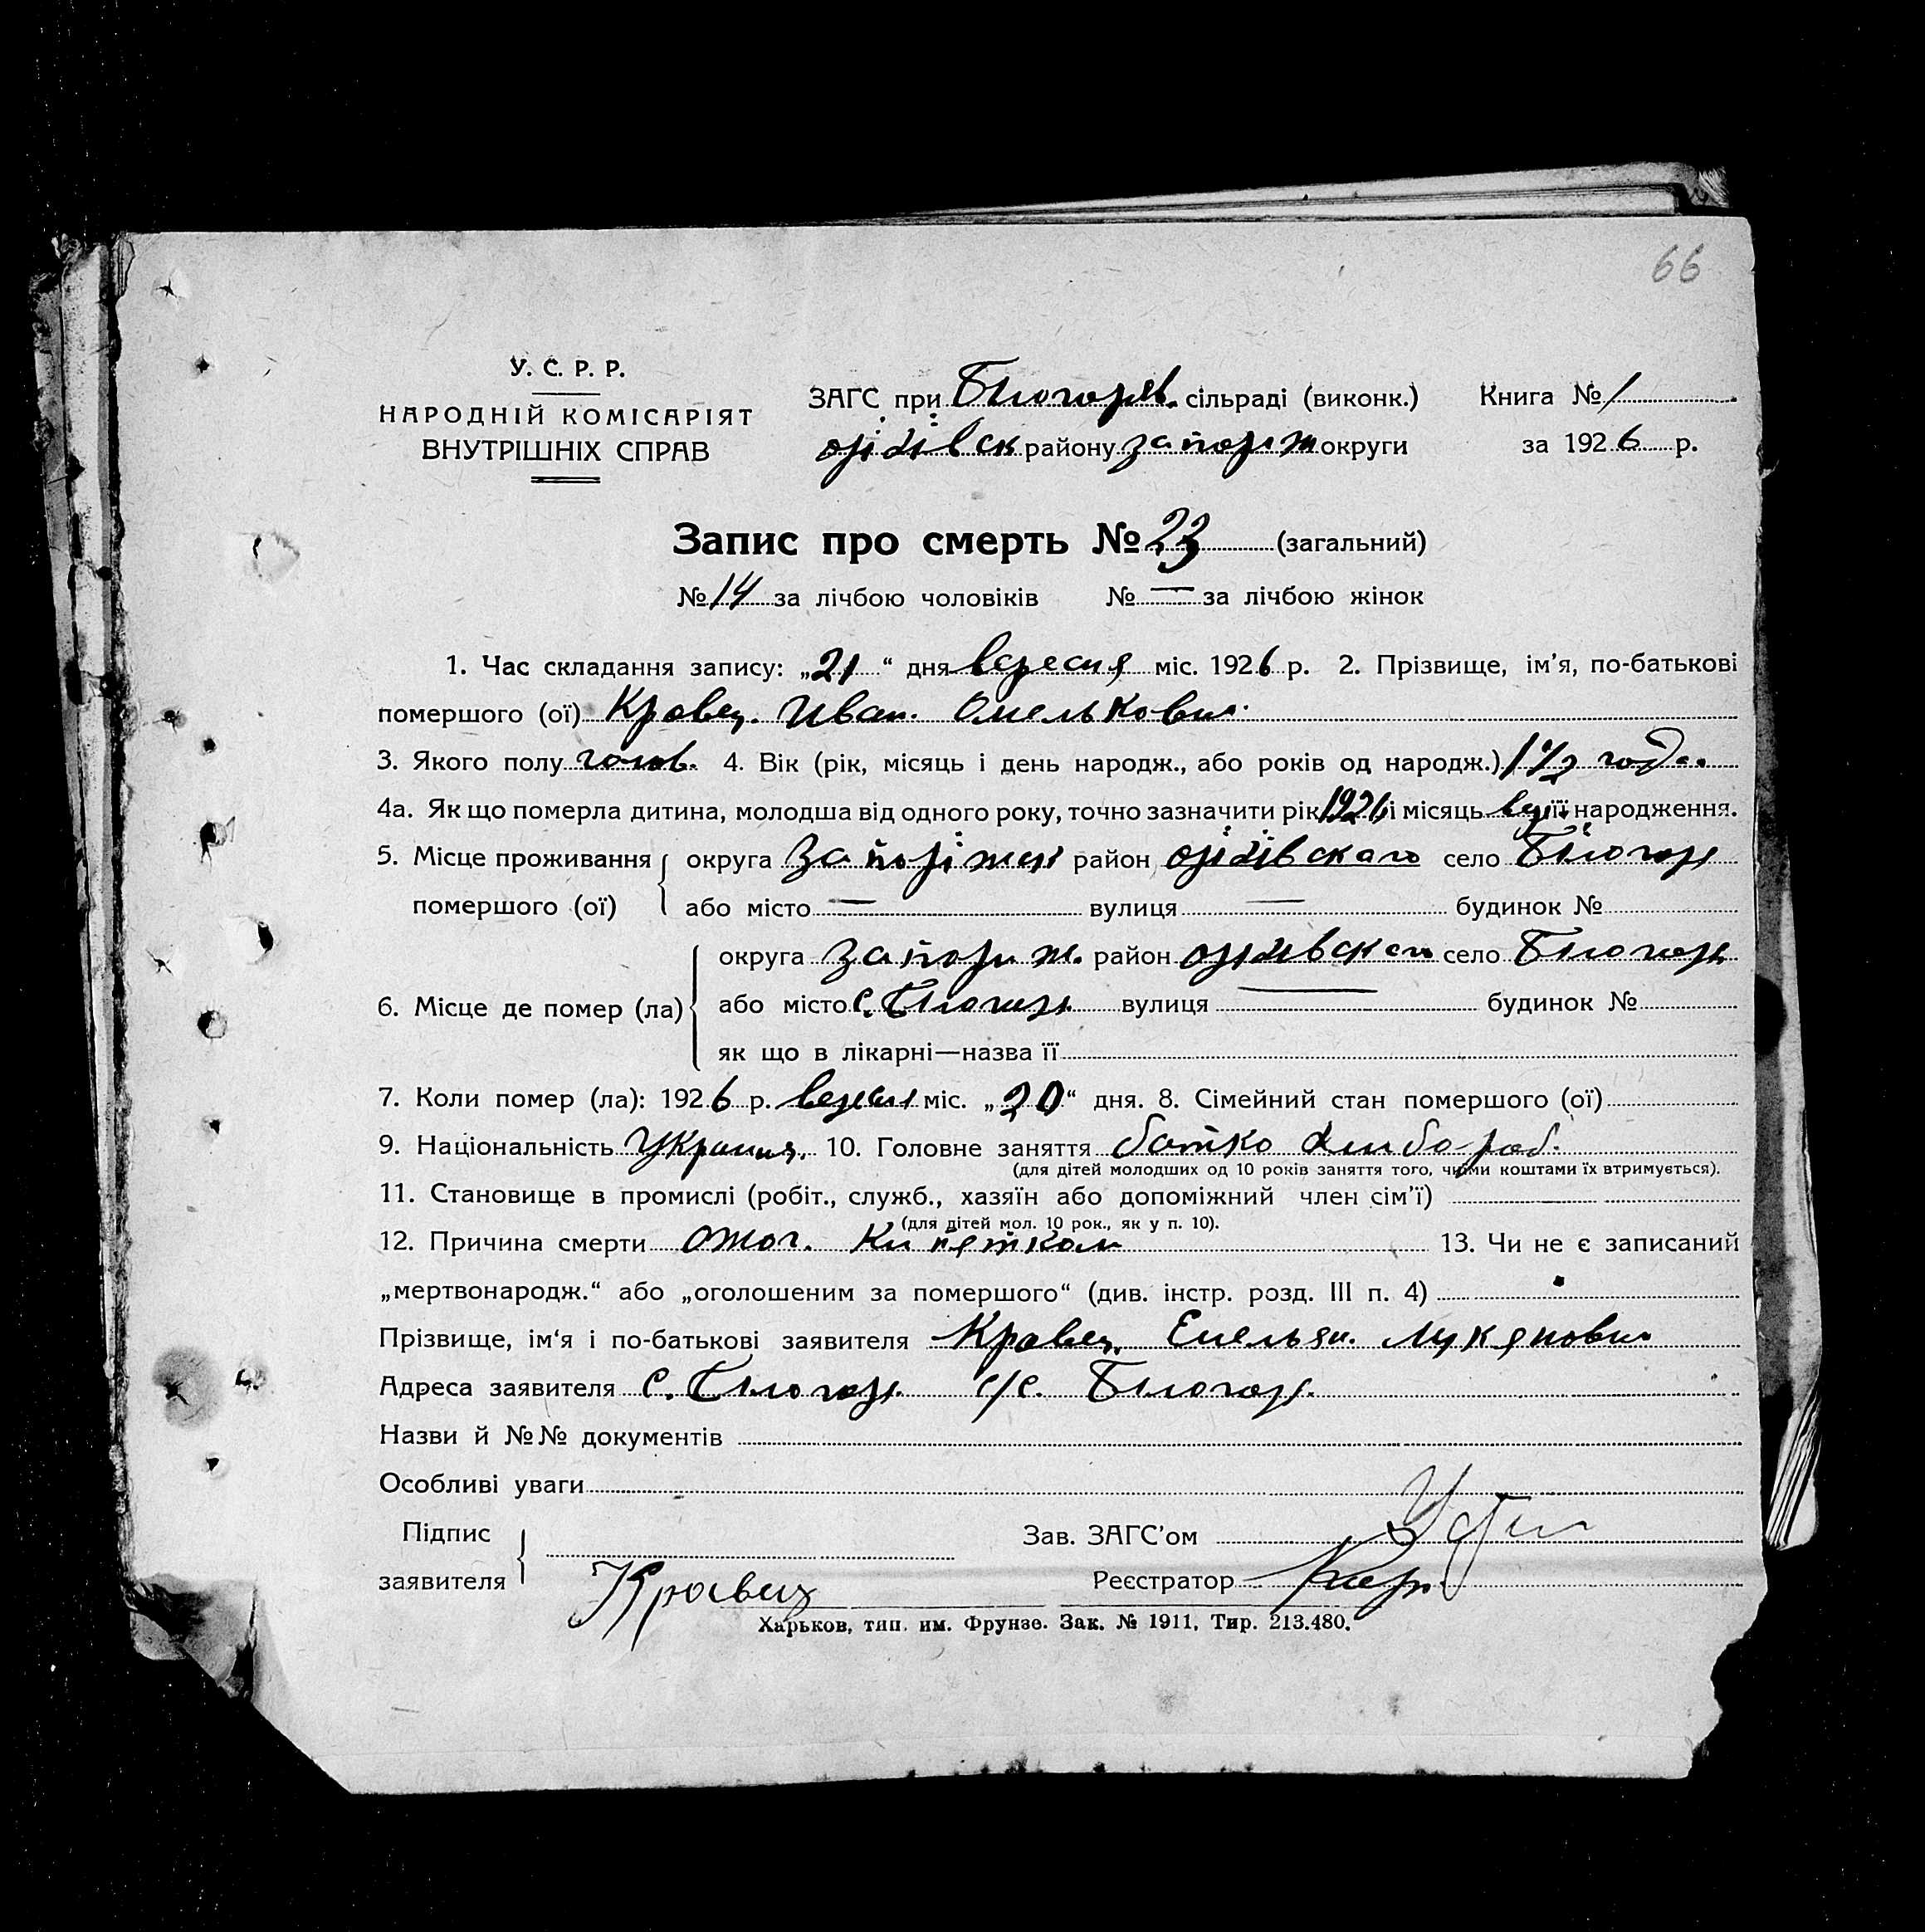 66
У. С. Р. Р.
НАРОДНІЙ КОМІСАРІЯТ
ВНУТРІШНІХ СПРАВ
ЗАГС при Білогорів. сільраді (виконк.) Книга № 1
оріхівск району запоріж округи за 1926 р.
Запис про смерть № 23 (загальний)
№ 14 за лічбою чоловіків № — за лічбою жінок
1. Час складання запису: „21“ дня вересня міс. 1926 р. 2. Прізвище, ім’я, по-батькові
помершого (ої) Кравец. Иван. Омелькович.
3. Якого полу чолов. 4. Вік (рік, місяць і день народж., або років од народж.) 1 1/2 года.
4а. Як що померла дитина, молодша від одного року, точно зазначити рік 1926 і місяць її народження.
5. Місце проживання помершого (ої) округа Запоріжск район оріхівскаго село Білогор
або місто — вулиця — будинок №
6. Місце де помер (ла) округа Запориж. район оріхівскаго село Білогор
або місто с. Білогор вулиця — будинок №
як що в лікарні—назва її
7. Коли помер (ла): 1926 р. вересня міс. „20“ дня. 8. Сімейний стан помершого (ої)
9. Національність Украинц. 10. Головне заняття батко хлибороб.
(для дітей молодших од 10 років заняття того, чиїми коштами їх втримується).
11. Становище в промислі (робіт., служб., хазяїн або допоміжний член сім’ї)
(для дітей мол. 10 рок., як у п. 10).
12. Причина смерти ожог. Кипятком 13. Чи не є записаний
„мертвонародж.“ або „оголошеним за помершого“ (див. інстр. розд. III п. 4)
Прізвище, ім‘я і по-батькові заявителя Кравец. Емельян. Лукянович
Адреса заявителя с. Білогор. с/с. Білогор.
Назви й №№ документів
Особливі уваги
Підпис заявителя Кравец
Зав. ЗАГС’ом
Реєстратор
Харьков, тип. им. Фрунзе. Зак. № 1911, Тир. 213.480.